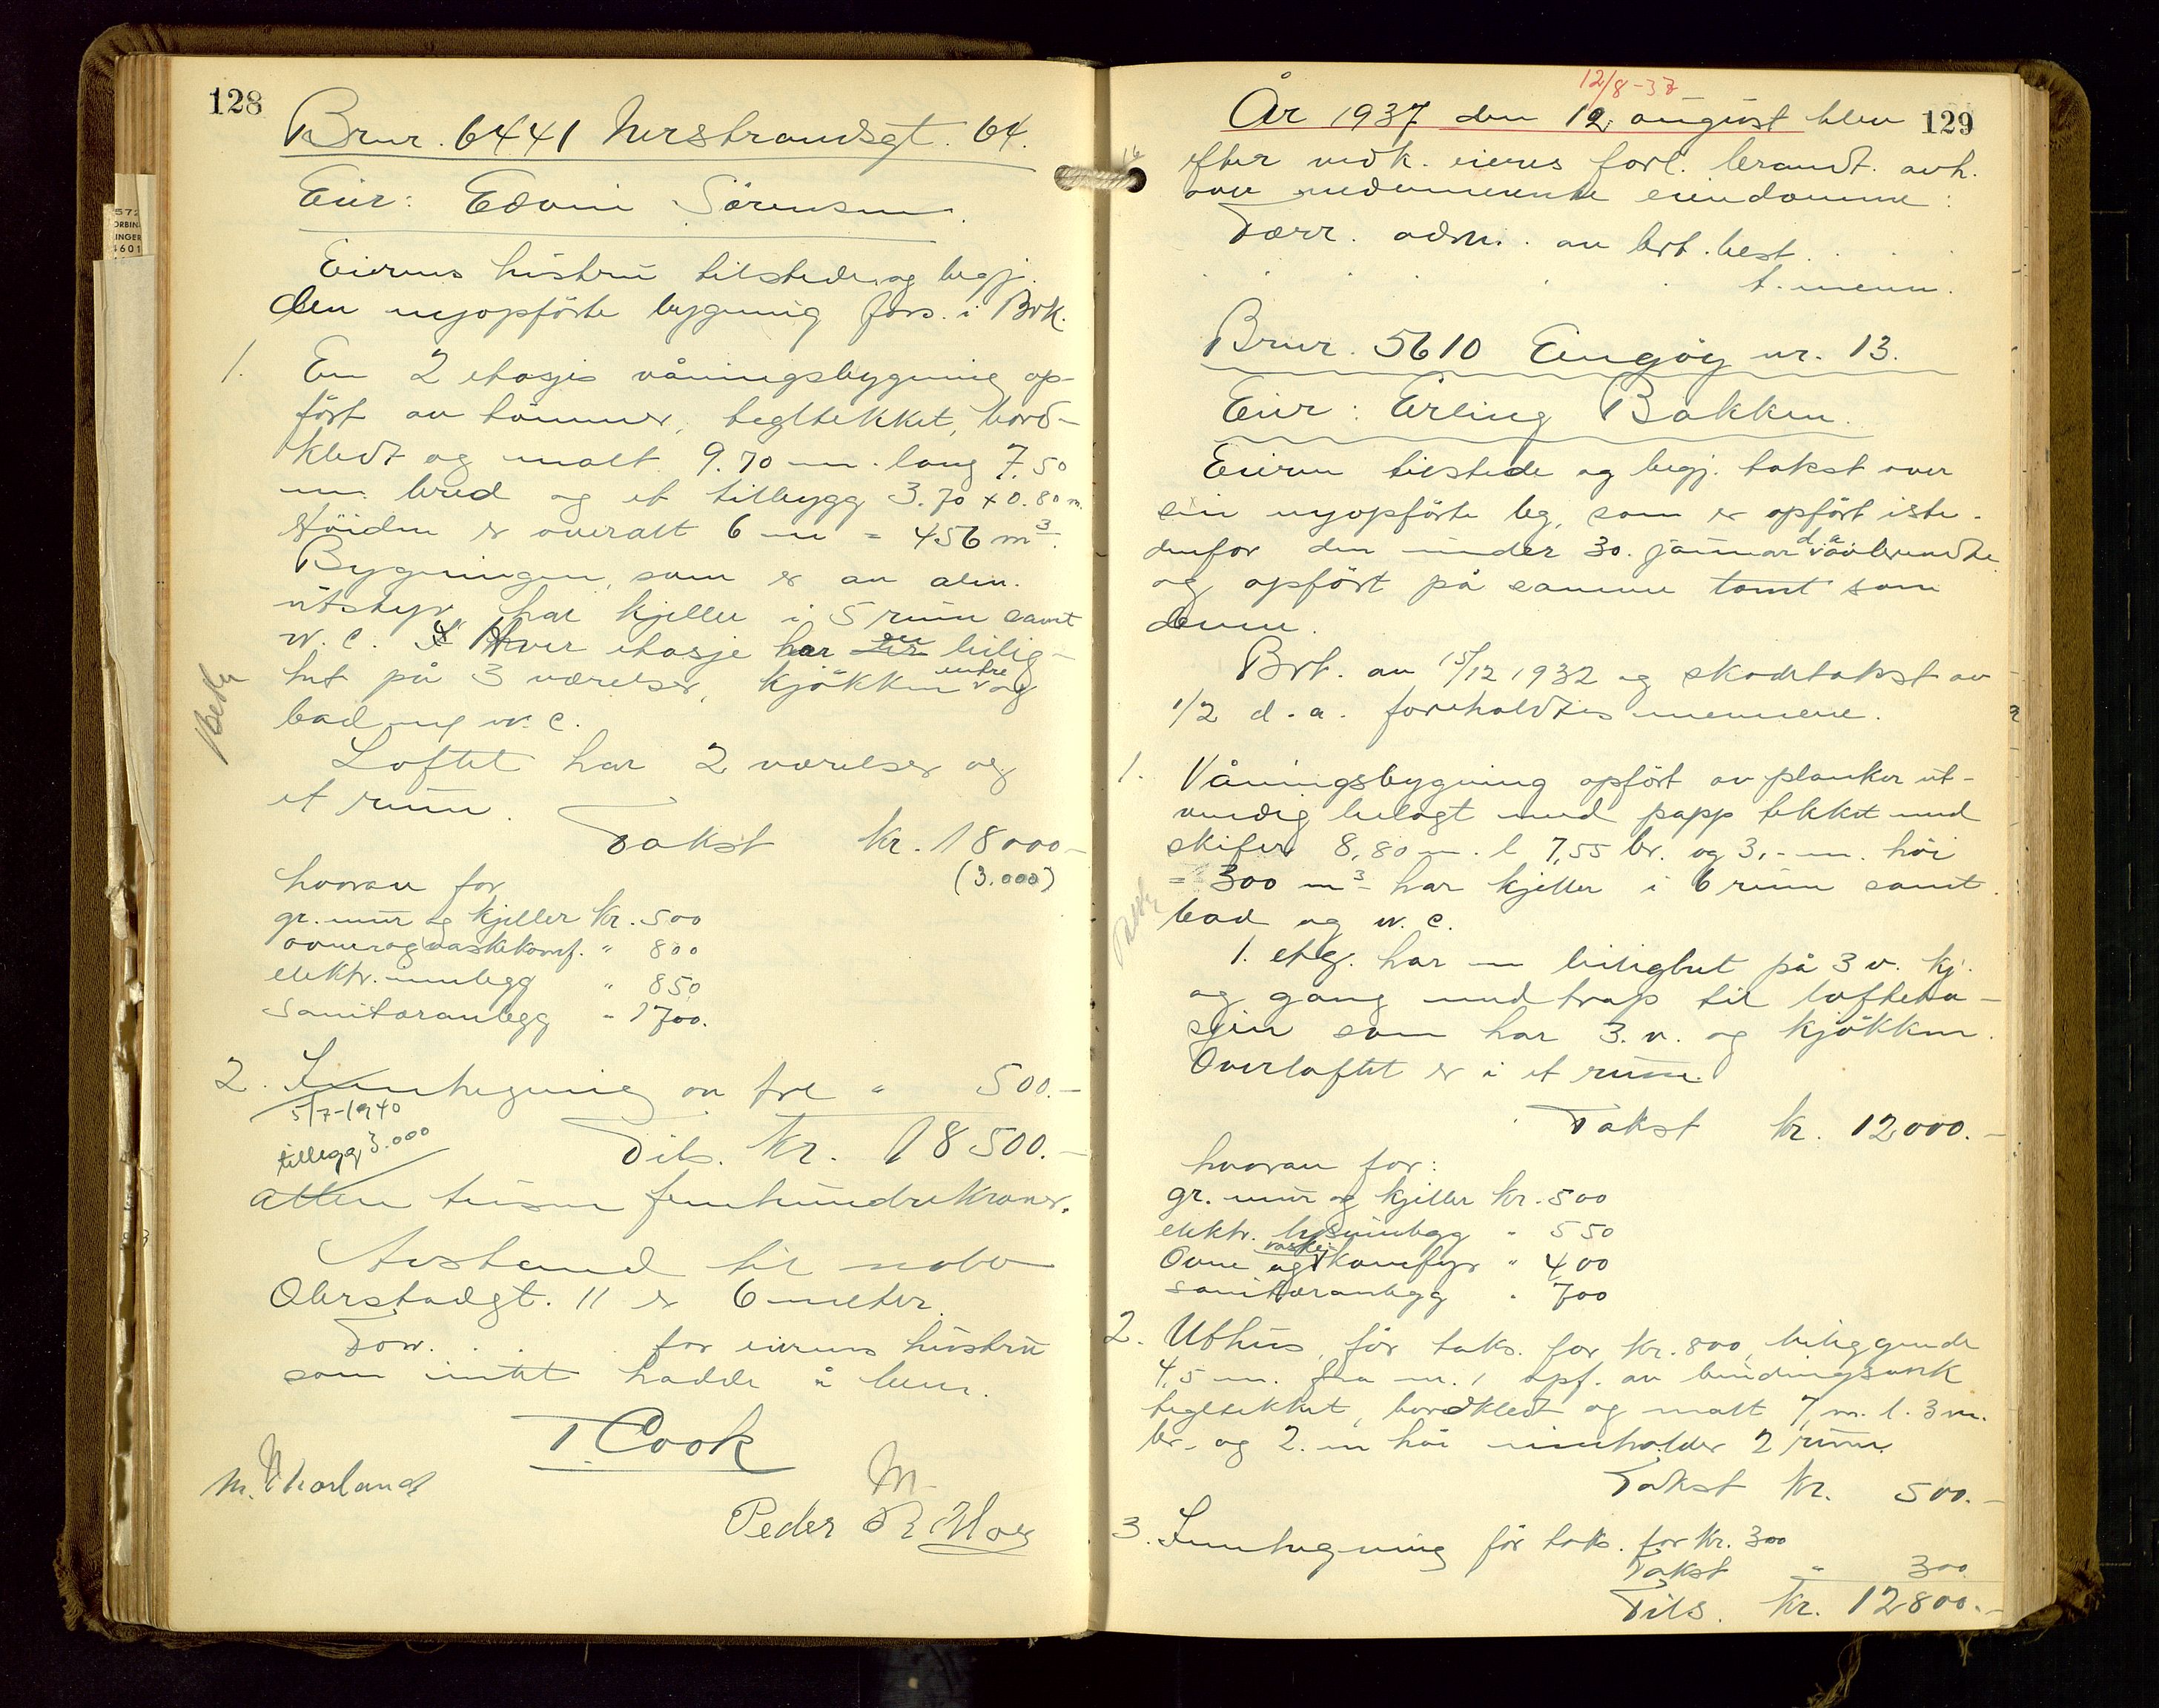 128
Brnr. 6441 Nerstrandsgt. 64.
Eier: Edvin Sörensen.
Eierens hustru tilstede og begj.
den nyopförte bygning fors. i Brk.
1. En 2 etasjes våningsbygning op-
fört av tömmer, tegltekket, bord-
kledt og malt 9.70 m. lang 7.50
m. bred og et tilbygg 3.70 x 0.80 m.
Höiden er overalt 6 m = 456 m³.
Bygningen, som er av alm.
utstyr, har kjeller i 5 rum samt
w.c. Hver etasje har en leilig-
het på 3 værelser, kjökken entre og
bad med w.c.
Loftet har 2 værelser og
et rum.
Takst kr. 18000.-
(3.000)
hvorav for
gr.mur og kjeller kr. 500
ovner og vaskekomf. " 800
elektr. innlegg " 850
Sanitæranlegg - 1700.
2. Innhegning av tre " 500.-
5/7-1940
tillegg 3.000
Tils. kr. 18500.-
Atten tusen femhundre kroner.
Avstand til nabo
Oberstadgt. 11 er 6 meter.
Forr. . . . for eierens hustru
som intet hadde å bem.
T. Cook
M. Thorland
Peder R. Moe
12/8-37
År 1937 den 12. august blev 129
efter vedk. eieres forl. branndt. avh.
over nedennevnte eiendomme:
Tærr. adm. av brt. best.
. . . t. menn.
Brnr. 5610 Engöy nr. 13.
Eier: Erling Bakken.
Eieren tilstede og begj. takst over
sin nyopförte bg. som er opfört iste-
denfor den under 30. januar d.a. avbrendte
og opfört på samme tomt som
denne.
Brt. av 15/12 1932 og skadetakst av
1/2 d.a. foreholdtes mennene.
1. Våningsbygning opfört av planker ut-
vendig belagt med papp tekket med
skifer 8,80 m. l 7,55 br. og 3,- m. höi
= 300 m³ - har kjeller i 6 rum samt
bad og w.c.
1. etg. har en leilighet på 3 v. kj.
og gang med trap til lofteta-
sjen som har 3. v. og kjökken.
Overloftet er i et rum.
Takst kr. 12000.-
hvorav for:
gr. mur og kjeller kr. 500
elektr. lysinnlegg " 550
Ovne og vaske komfyr " 400
sanitæranlegg " 700
2. Uthus, för taks. for kr. 800, beliggende
4,5 m. fra nr. 1 opf. av bindingsverk
tegltekket, bordkledt og malt 7 m. l. 3 m.
br. og 2. m höi inneholder 2 rum.
Takst kr. 500.-
3. Innhegning för taks. for kr. 300
Takst " 300
Tils. kr. 12800.-